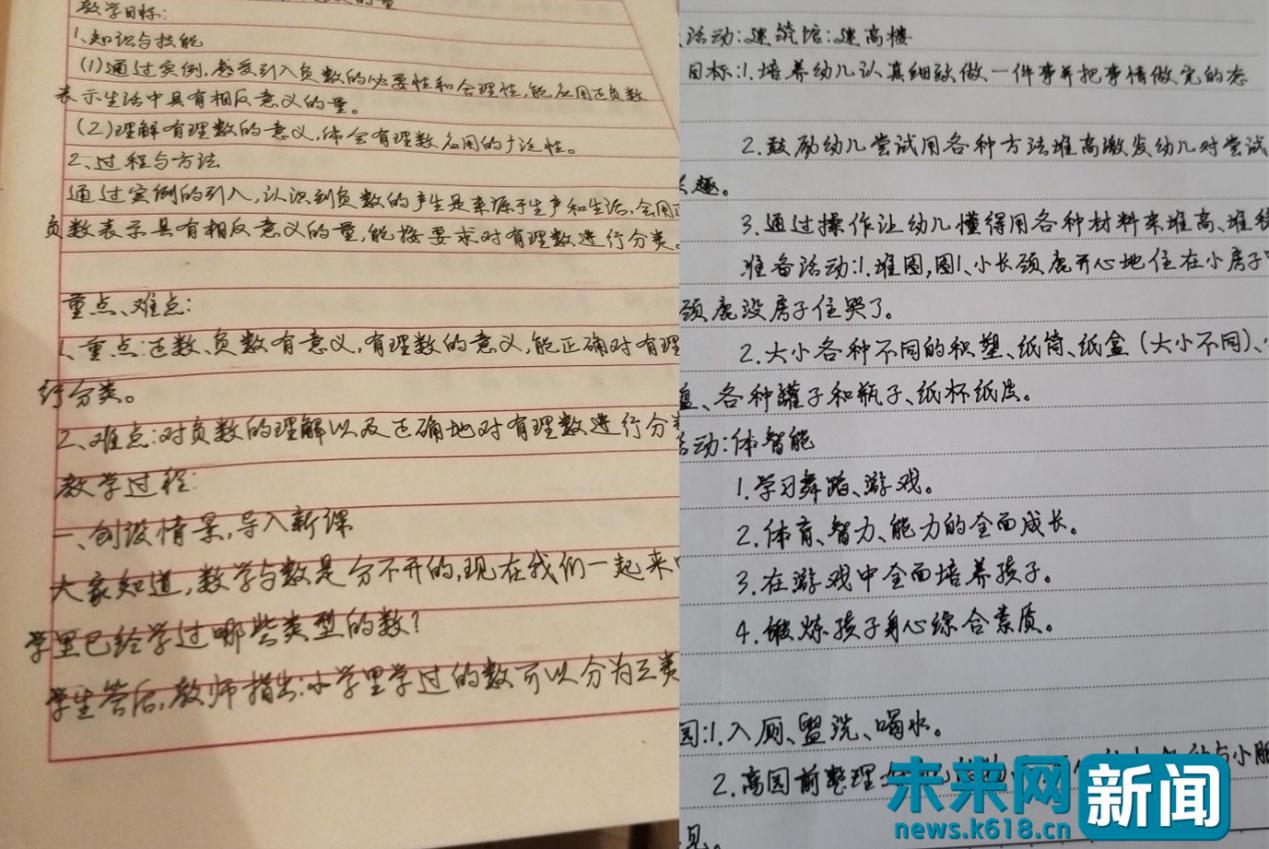 教学目标:
1、知识与技能
(1)通过实例,感受引入负数的必要性和合理性,能应用正负数
表示生活中具有相反意义的量。
(2)理解有理数的意义,体会有理数应用的广泛性。
2、过程与方法
通过实例的引入,认识到负数的产生是来源于生产和生活,会用正
负数表示具有相反意义的量,能按要求对有理数进行分类。
重点、难点:
1、重点:正数、负数有意义,有理数的意义,能正确对有理
行分类。
2、难点:对负数的理解以及正确地对有理数进行分类
教学过程:
一、创设情景,导入新课
大家知道,数学与数是分不开的,现在我们一起来
学里已经学过哪些类型的数?
学生答后,教师指出:小学里学过的数可以分为三类
活动:建筑馆:建高楼
目标:1.培养幼儿认真细致做一件事并把事情做完的态
2.鼓励幼儿尝试用各种方法堆高激发幼儿对尝试
趣。
3.通过操作让幼儿懂得用各种材料来堆高、堆稳
准备活动:1.堆图,图1、小长颈鹿开心地住在小房子
颈鹿没房子住哭了。
2.大小各种不同的积塑、纸筒、纸盒(大小不同)、
盘、各种罐子和瓶子、纸杯纸
活动:体智能
1.学习舞蹈、游戏。
2.体育、智力、能力的全面成长。
3.在游戏中全面培养孩子。
4.锻炼孩子身心综合素质。
园:1.入厕、盥洗、喝水。
2.离园前整理
与小朋
见。
未来网 新闻
news.k618.cn